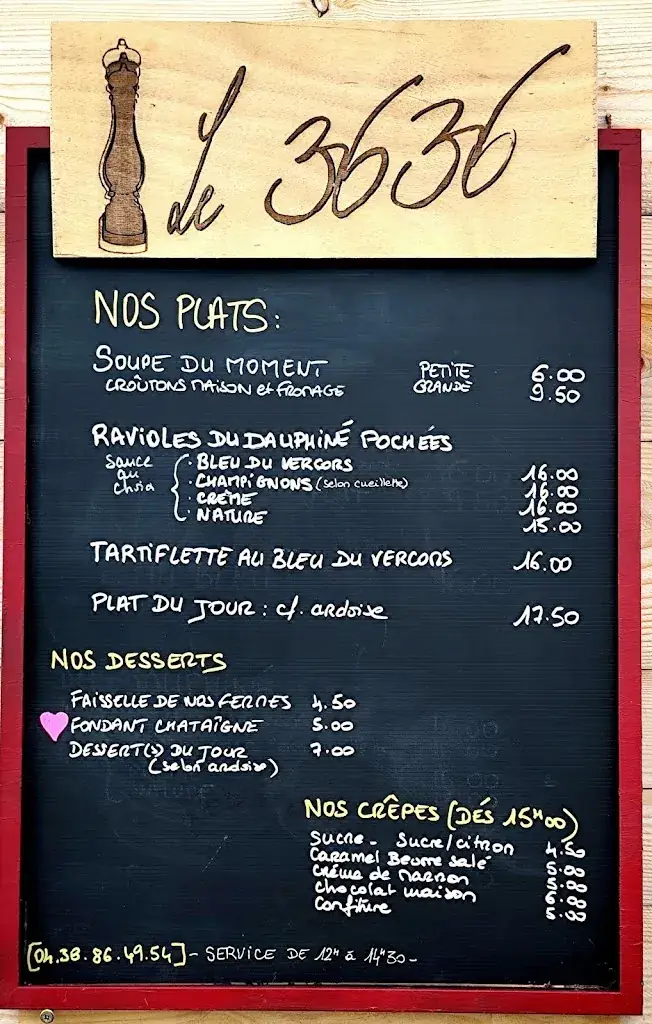 Le 3636
NOS PLATS:
SOUPE DU MOMENT PETITE 6.00
CROÛTONS MAISON et FROMAGE GRANDE 9.50
RAVIOLES DU DAUPHINÉ POCHÉES
sauce au choix
· BLEU DU VERCORS 16.00
· CHAMPIGNONS (selon cueillette) 16.00
· CRÈME 16.00
· NATURE 15.00
TARTIFLETTE AU BLEU DU VERCORS 16.00
PLAT DU JOUR : cf. ardoise 17.50
NOS DESSERTS
FAISSELLE DE NOS FERMES 4.50
FONDANT CHATAÎGNE 5.00
DESSERT(S) DU JOUR 7.00
(selon ardoise)
NOS CRÊPES (DÉS 15H00)
Sucre - Sucre/citron 4.50
Caramel Beurre salé 5.00
Crème de marron 5.00
chocolat maison 6.00
Confiture 5.00
[04.38.86.49.54] - SERVICE DE 12H à 14H30 -